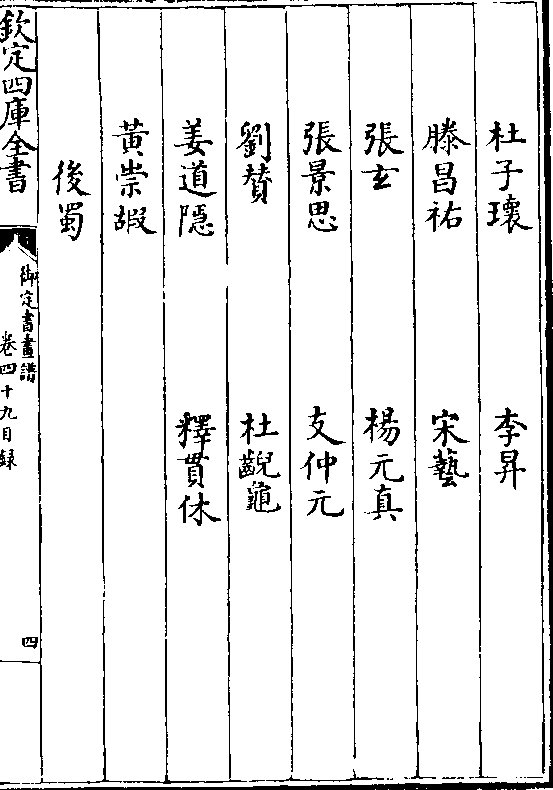 杜子瓌 李昇
滕昌祐 宋藝
張玄 楊元真
張景思 支仲元
劉贊 杜齯龜
姜道隱 釋貫休
黃崇嘏
後蜀
欽定四庫全書
御定書畫譜
卷四十九目録
四